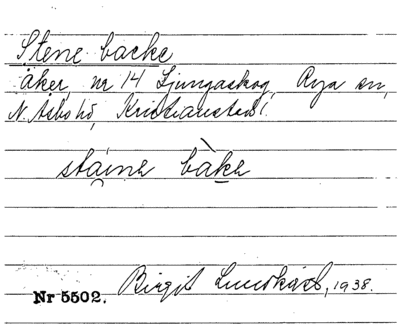 Stene backe
åker, nr 14 Ljungaskog, Rya sn,
N. Åsbo hd, Kristianstad l.
staine bàke
Birgit Lundkvist, 1938.
Nr 5502.